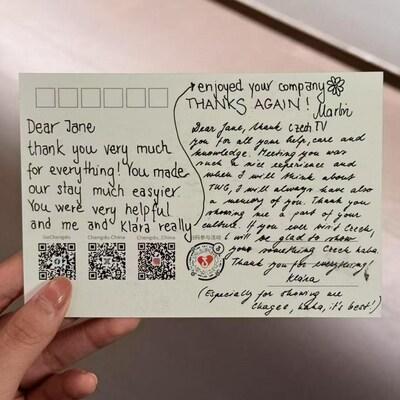 Dear Jane
thank you very much
for everything! You made
our stay much easier.
You were very helpful
and me and Klára really
enjoyed your company
THANKS AGAIN!
Martin
Czech TV
Dear Jane, thank
you for all your help, care and
knowledge. Meeting you was
such a nice experience and
when I will think about
TWG, I will always have also
a memory of you. Thank you
showing me a part of your
culture. If you ever visit Czech,
I will be glad to show
you something Czech haha.
Thank you for everything!
Klára
(Especially for showing me
Chagee, haha, it's best!)
GoChengdu
Chengdu, China
Chengdu, China